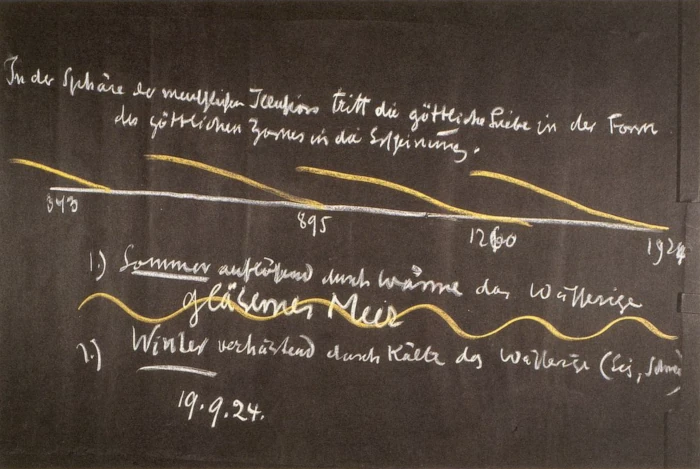 In der Sphäre der menschlichen Illusions tritt die göttliche Liebe in der Form
des göttlichen Zornes in die Erscheinung.
343
895
1260
1924
1.) Sommer auflösend durch Wärme das Wässerige
gläsernes Meer
2.) Winter verhärtend durch Kälte das Wässerige (Eis,
19.9.24.